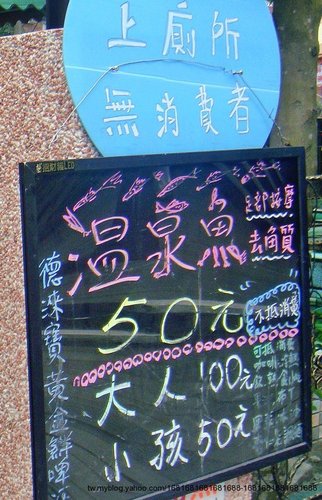 上廁所
無消費者
溫泉魚
足部按摩
去角質
50元
不抵消費
大人100元
小孩50元
德淶寶黃金鮮啤
可抵
tw.myblog.yahoo.com/1681681681681688-1681681681681688